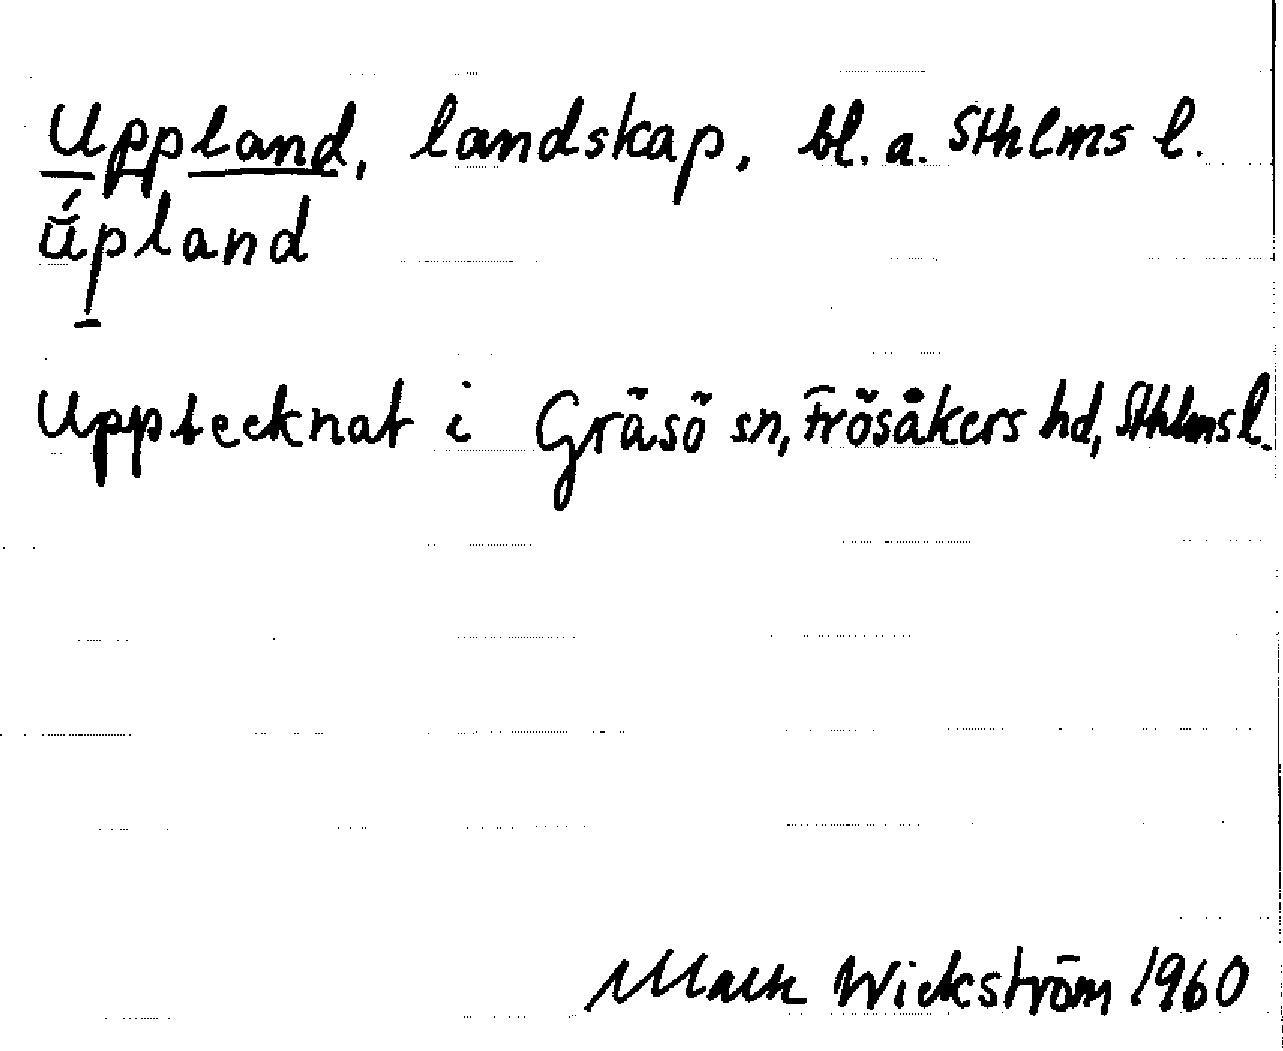 Uppland, landskap, bl. a. Sthlms l.
ŭ́pland
Upptecknat i Gräsö sn, Frösåkers hd, Sthlms l.
Wickström 1960